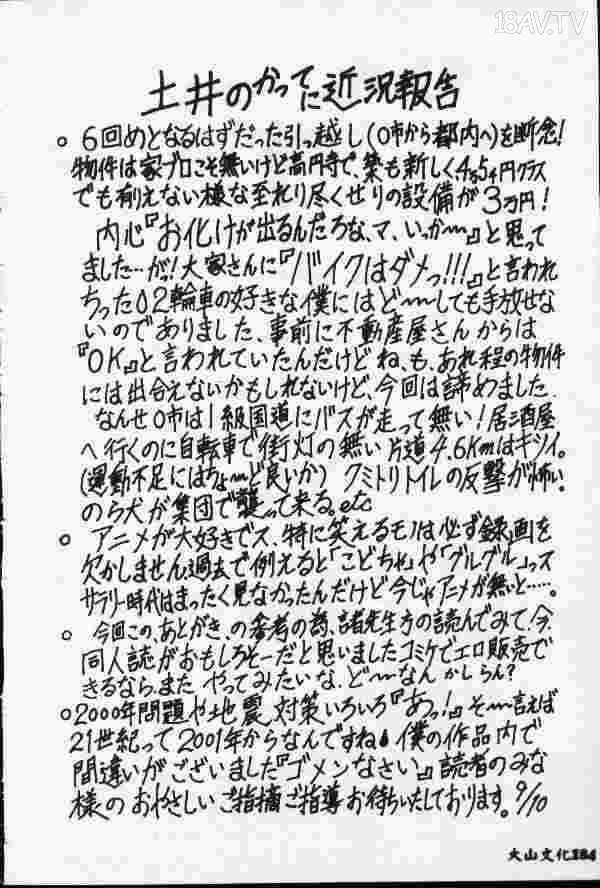 18AV.TV
土井のかってに近況報告
○ 6回めとなるはずだった引っ越し(O市から都内へ)を断念!
物件は家ブロこそ無いけど高円寺で、築も新しく、4〜5ケ円クラス
でも有りえない様な至れり尽くせりの設備が3万円!
内心『お化けが出るんだろな、マ、いっか〜』と思って
ました…がッ!大家さんに『バイクはダメっ!!!』と言われ
ちった〇2輪車の好きな僕にはど〜しても手放せな
いのでありました、事前に不動産屋さんからは
『OK』と言われていたんだけどね、も、あれ程の物件
には出合えないかもしれないけど、今回は諦めました
なんせO市は1級国道にバスが走って無い!居酒屋
へ行くのに自転車で街灯の無い片道4.6Kmはキツイ。
(運動不足にはちょ〜ど良いか) クミトリトイレの反撃が怖い。
のら犬が集団で襲って来る。etc
○ アニメが大好きでス、特に笑えるモノは必ず録画を
欠かしません過去で例えると「こどちゃ」や「グルグル」っス
サラリー時代はまったく見なかったんだけど今じゃアニメが無いと……。
○ 今回この、あとがき、の参考の為、諸先生方の読んでみて、今、
同人誌がおもしろそーだと思いましたコミケでエロ販売で
きるなら、また やってみたいな、ど〜なん かしらん?
○2000年問題や地震対策いろいろ『あっ!』そ〜言えば
21世紀って2001年からなんですね 僕の作品内で
間違いがございました『ゴメンなさい』読者のみな
様の おやさしい ご指摘ご指導 お待ちいたしております。9/10
大山文化184